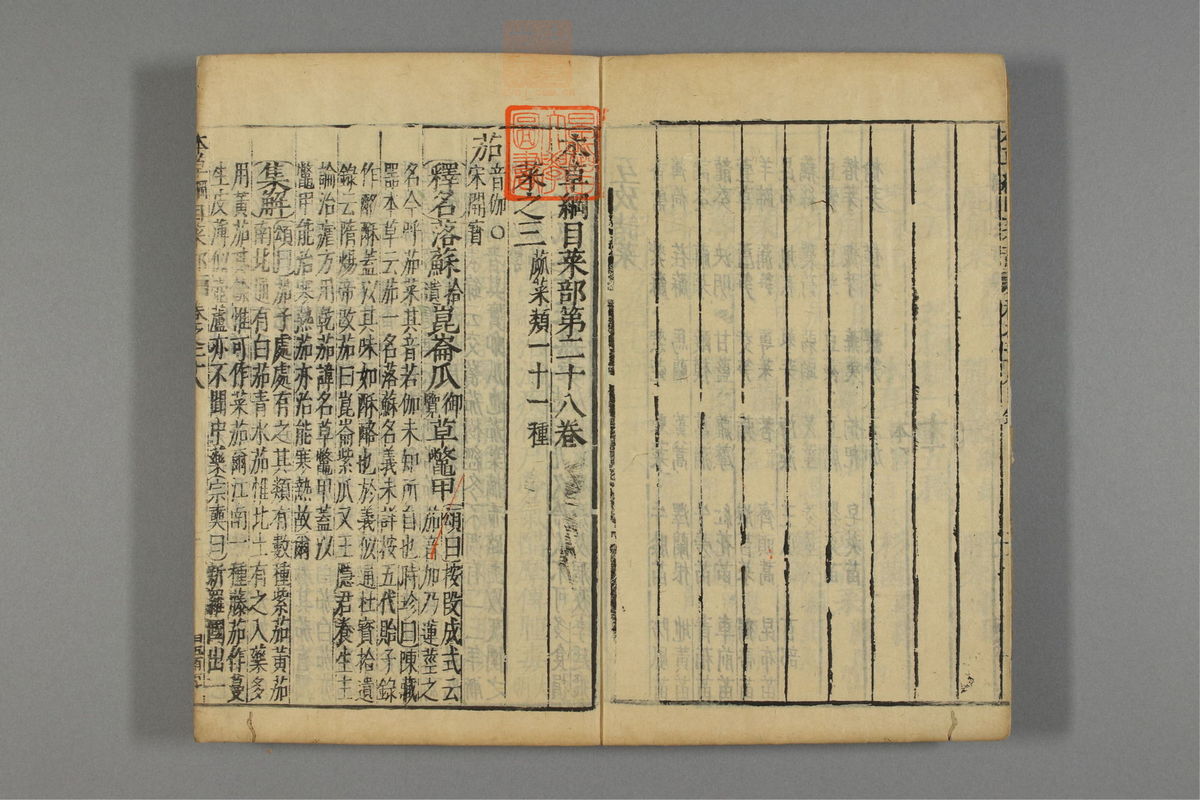 本草綱目菜部第二十八卷
菜之三 蓏菜類一十一種
茄 音伽○宋開寶
釋名落蘇 拾遺 崑崙瓜 御覽 草鼈甲 頌曰按段成式云茄音加乃蓮莖之
名今呼茄菜其音若伽未知所自也時珍曰陳藏
器本草云茄一名落蘇名義未詳按五代貽子錄
作酪酥蓋以其味如酥酪也於義似通杜寶拾遺
錄云隋煬帝改茄曰崑崙紫瓜又王隱君養生主
論治瘧方用乾茄諱名草鼈甲蓋以
鼈甲能治寒熱茄亦治能寒熱故爾
集解 頌曰茄子處處有之其類有數種紫茄黃茄
南北通有白茄青水茄惟北土有之入藥多
用黃茄其餘惟可作菜茄爾江南一種藤茄作蔓
生皮薄似壺蘆亦不聞中藥宗奭曰新羅國出一